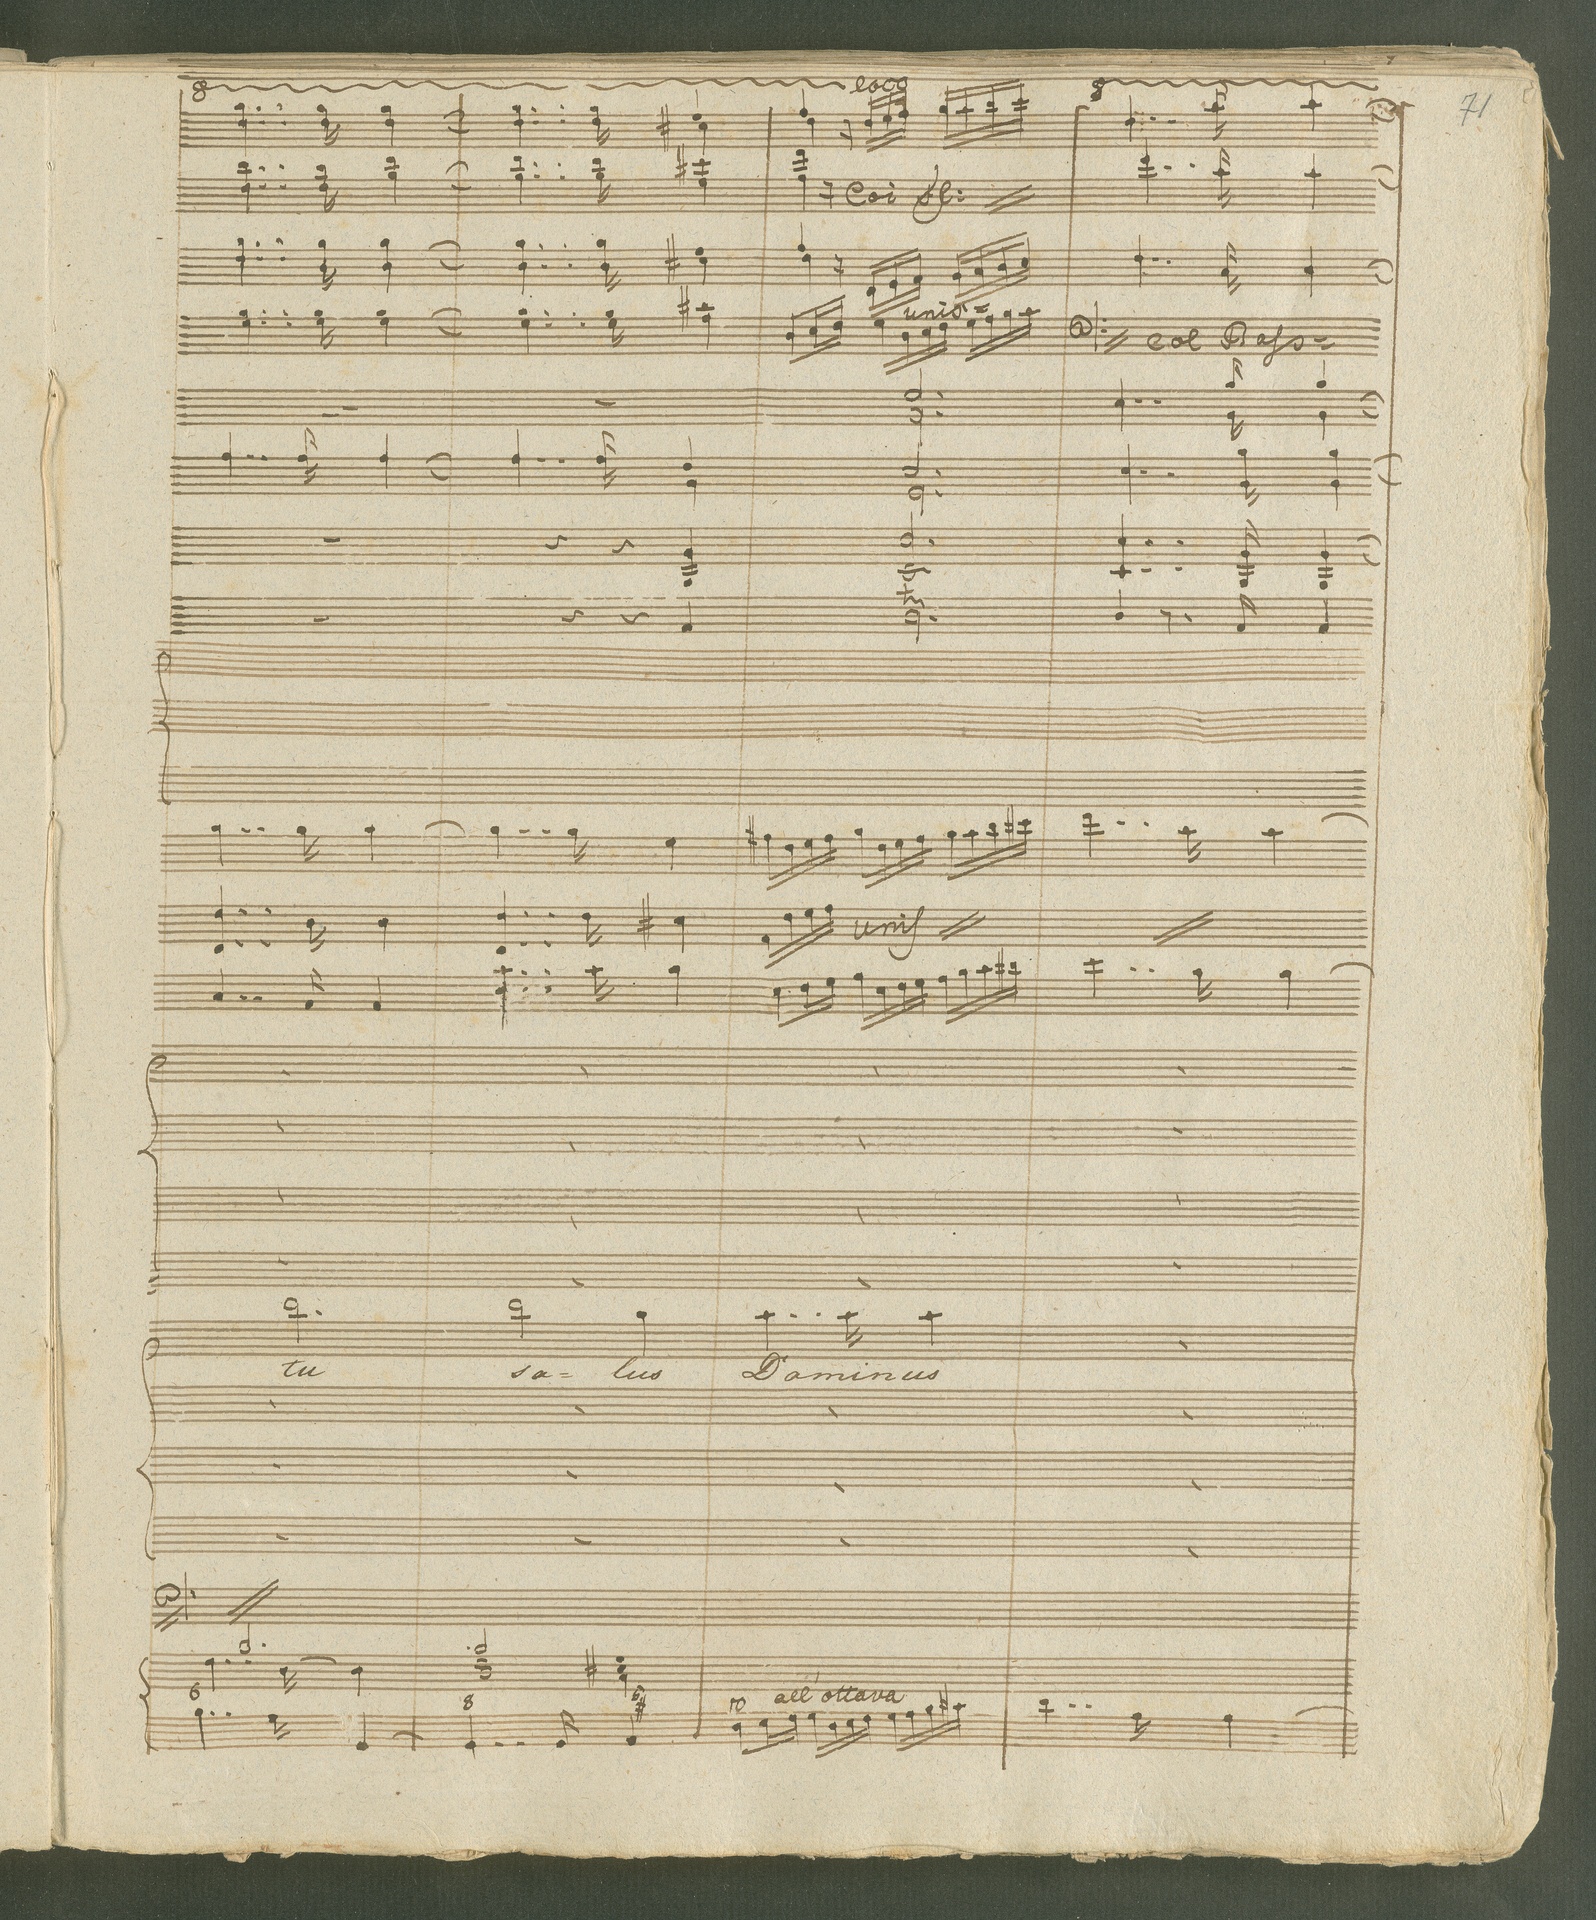 8 loco 8
71
Coi Fl:
unis=
col Bass=
unis
tu sa= lus Dominus
6 8 6 all' ottava